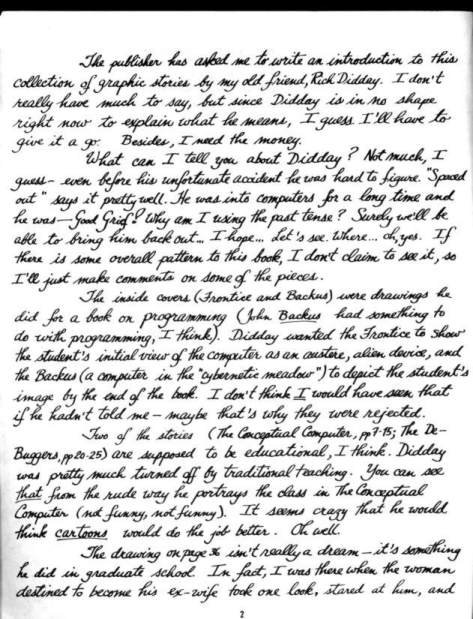 The publisher has asked me to write an introduction to this
collection of graphic stories by my old friend, Rich Didday. I don't
really have much to say, but since Didday is in no shape
right now to explain what he means, I guess I'll have to
give it a go. Besides, I need the money.
What can I tell you about Didday? Not much, I
guess - even before his unfortunate accident he was hard to figure. "Spaced
out" says it pretty well. He was into computers for a long time and
he was — Good Grief! Why am I using the past tense? Surely we'll be
able to bring him back out... I hope... Let's see. Where... oh, yes. If
there is some overall pattern to this book, I don't claim to see it, so
I'll just make comments on some of the pieces.
The inside covers (Frontice and Backus) were drawings he
did for a book on programming (John Backus had something to
do with programming, I think). Didday wanted the Frontice to show
the student's initial view of the computer as an austere, alien device, and
the Backus (a computer in the "cybernetic meadow") to depict the student's
image by the end of the book. I don't think I would have seen that
if he hadn't told me - maybe that's why they were rejected.
Two of the stories (The Conceptual Computer, pp 7-15; The De-
Buggers, pp 20-25) are supposed to be educational, I think. Didday
was pretty much turned off by traditional teaching. You can see
that from the rude way he portrays the class in The Conceptual
Computer (not funny, not funny). It seems crazy that he would
think cartoons would do the job better. Oh well.
The drawing on page isn't really a dream - it's something
he did in graduate school. In fact, I was there when the woman
destined to become his ex-wife took one look, stared at him, and
2